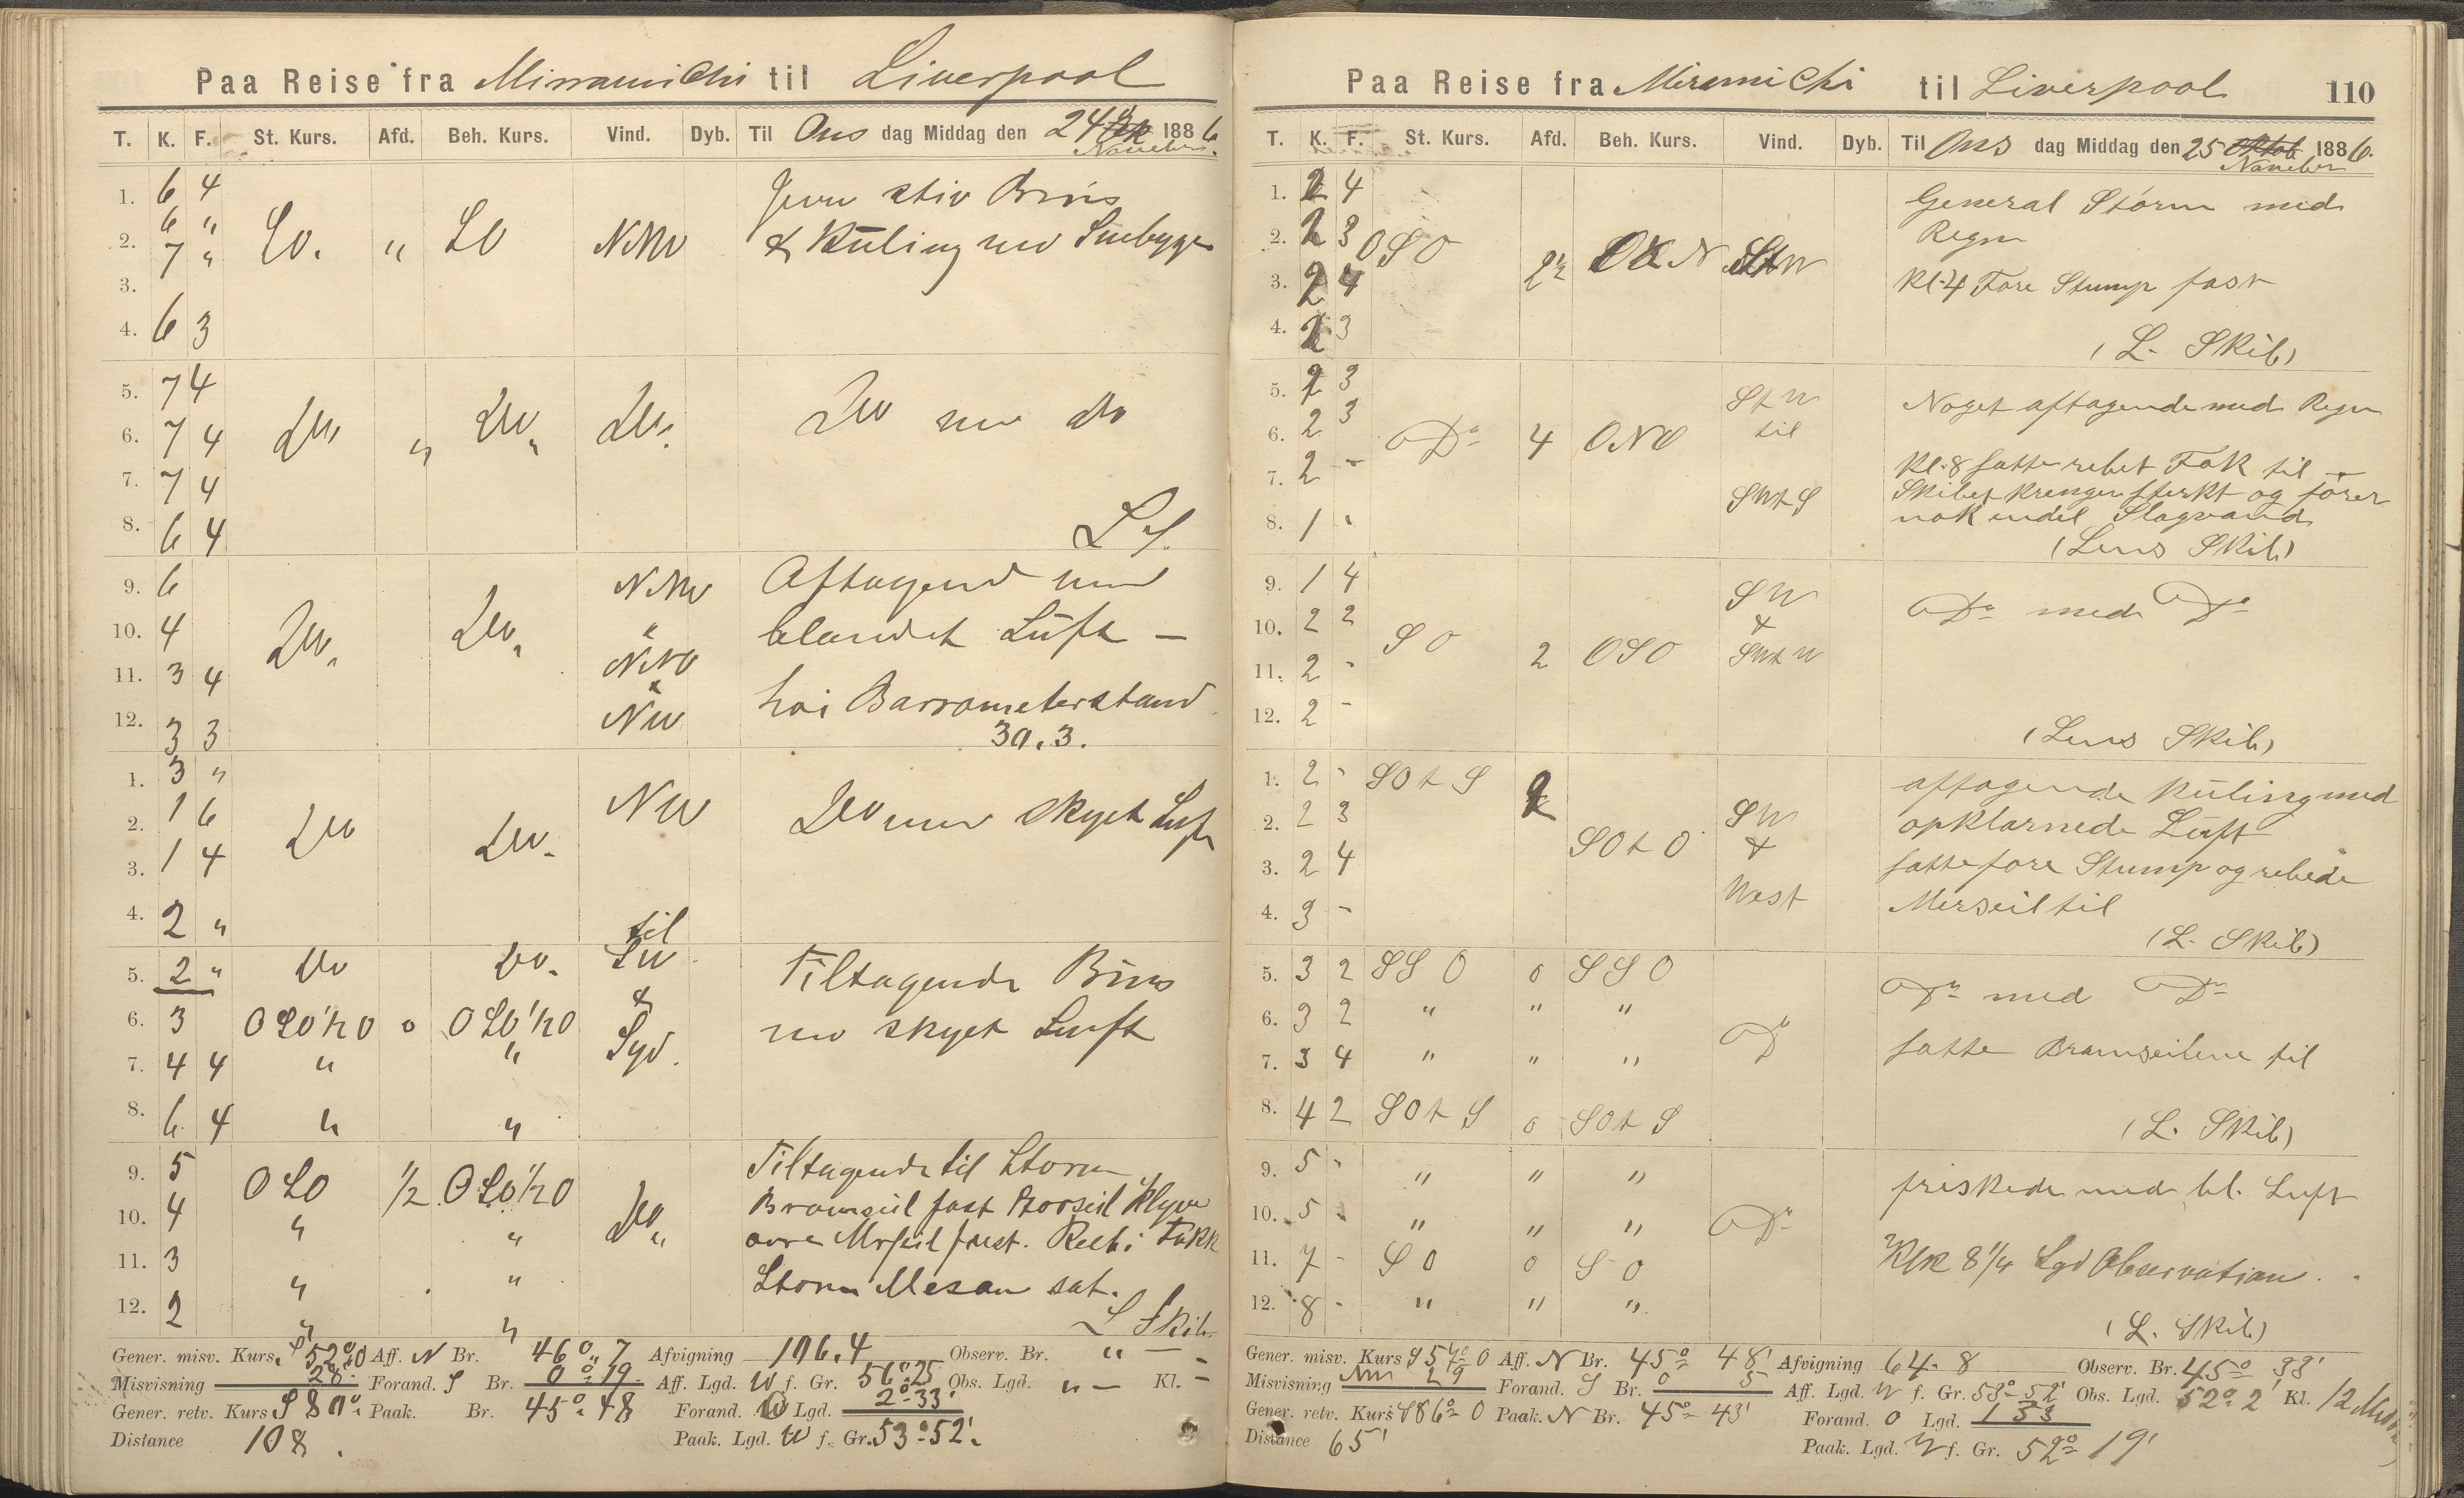 Paa Reise fra Mirramichi til Liverpool
T. K. F. St. Kurs. Afd. Beh. Kurs. Vind. Dyb. Til Ons dag Middag den 24 1886
1. 6 4 Jevn stiv Bris
2. 6 " SO. " SO NNW & Kuling med Snebyger
3. 7 "
4. 6 3
5. 7 4
6. 7 4 Do " Do Do Do med do
7. 7 4
8. 6 4
9. 6 NNW Aftagend med
10. 4 Do Do blandet Luft —
11. 3 4 hoi Barrometerstand
12. 3 3 NW 30.3.
1. 3 "
2. 1 6 Do Do NW Do med skyet Luft
3. 1 4
4. 2 " til
5. 2 " Do Do SW Tiltagende Bris
6. 3 OSO½O o OSO½O & med skyet Luft
7. 4 4 " " Syd.
8. 6 4 " "
9. 5 OSO ½ OSO½O Tiltagende til Storm
10. 4 " " Do Bramseil fast Storseil Klyver
11. 3 " " ovre Mrseil fast. Reeb i Fokk
12. 2 " " Storm Mesan sat.
L Skib
Gener. misv. Kurs. S 52° O Aff. N Br. 46° 7 Afvigning 106.4 Observ. Br. " —
Misvisning 28 Forand. S Br. 0° 19 Aff. Lgd. W f. Gr. 56° 25 Obs. Lgd. " — Kl. -
Gener. retv. Kurs S 80° Paak. Br. 45° 48 Forand. O Lgd. 2° 33'
Distance 108. Paak. Lgd. W f. Gr. 53° 52'
Paa Reise fra Miramichi til Liverpool 110
T. K. F. St. Kurs. Afd. Beh. Kurs. Vind. Dyb. Til Ons dag Middag den 25 Oktob 1886.
1. 2 4 General Storm med
2. 2 3 OSO Regn
3. 2 4 2½ Kl. 4 Fore Stump fast
4. 2 3 (L. Skib)
5. 2 3 StW Noget aftagende med Regn
6. 2 3 Do 4 ONO til
7. 2 - Kl. 8 satte rebet Fok til —
SWtS Skibet krenger sterkt og fører
8. 1 " nok endel Slagvand
(Lens Skib)
9. 1 4 SW
10. 2 2 SO & Do med Do
11. 2 - 2 OSO SWtW
12. 2 - (Lens Skib)
1. 2 - SOtS 2 aftagende Kuling med
2. 2 3 SW opklarnede Luft
3. 2 4 SOtO & satte fore Stump og rebede
4. 3 - West Merseil til
(L. Skib)
5. 3 2 SSO o SSO Do med Do
6. 3 2 " " "
7. 3 4 " " " Do satte Bramseilene til
8. 4 2 SOtS o SOtS (L. Skib)
9. 5 - " " " friskede med bl. Luft
10. 5 - " " " Do
11. 7 - SO o SO Klk 8¼ Lgd Observation.
12. 8 - " " " (L. Skib)
Gener. misv. Kurs S 57° O Aff. N Br. 45° 48' Afvigning 64.8 Observ. Br. 45° 33'
Misvisning 29 Forand. S Br. 0 5 Aff. Lgd. W f. Gr. 53° 52' Obs. Lgd. 52° 2' Kl. 12
Gener. retv. Kurs S 86° O Paak. N Br. 45° 43' Forand. O Lgd. 1 33
Distance 65' Paak. Lgd. W f. Gr. 52° 19'